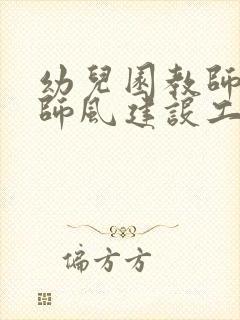 幼兒園教師
師風建設工
偏方方